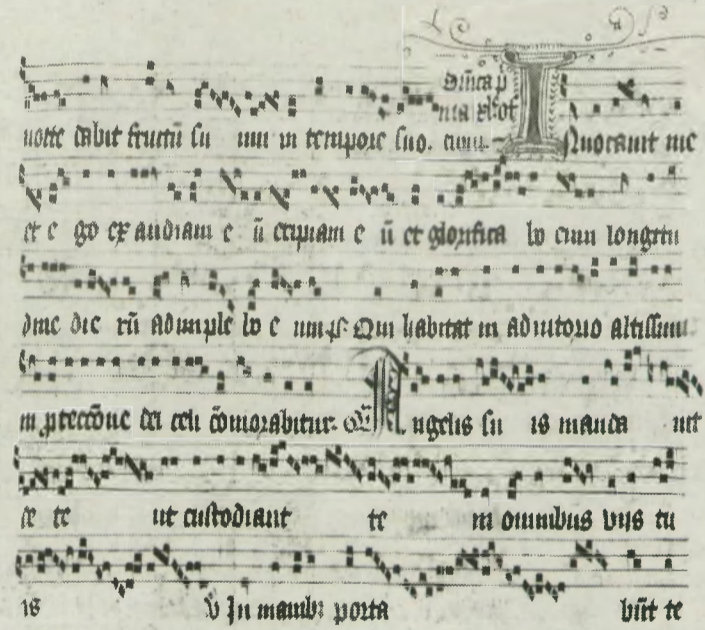 nocte dabit fructū su um in tempore suo. cum
Dn̄ica p
Inuocauit me
et e go ex audiam e ū eripiam e ū et glorifica bo eum longitu
dine die rū adimple bo e um ps Qui habitat in adiutorio altissimi
in ꝓteccōne dei celi cōmorabitur. Angelis su is manda uit
de te ut custodiant te in omnibus viis tu
is v In manib; porta būt te